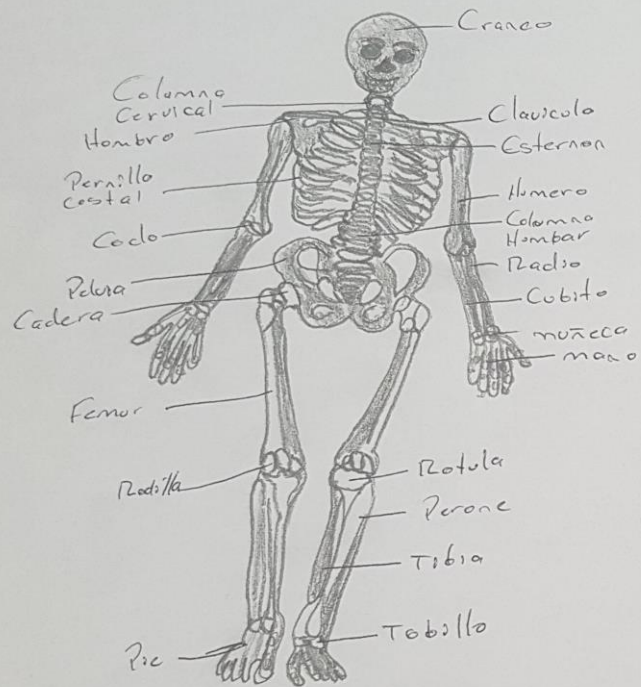 Craneo
Columna
Cervical
Hombro
Clavicula
Esternon
Pernillo
costal
Humero
Codo
Columna
Hombar
Radio
Pelvia
Cubito
Cadera
muñeca
mano
Femur
Rodilla
Rotula
Perone
Tibia
Tobillo
Pie